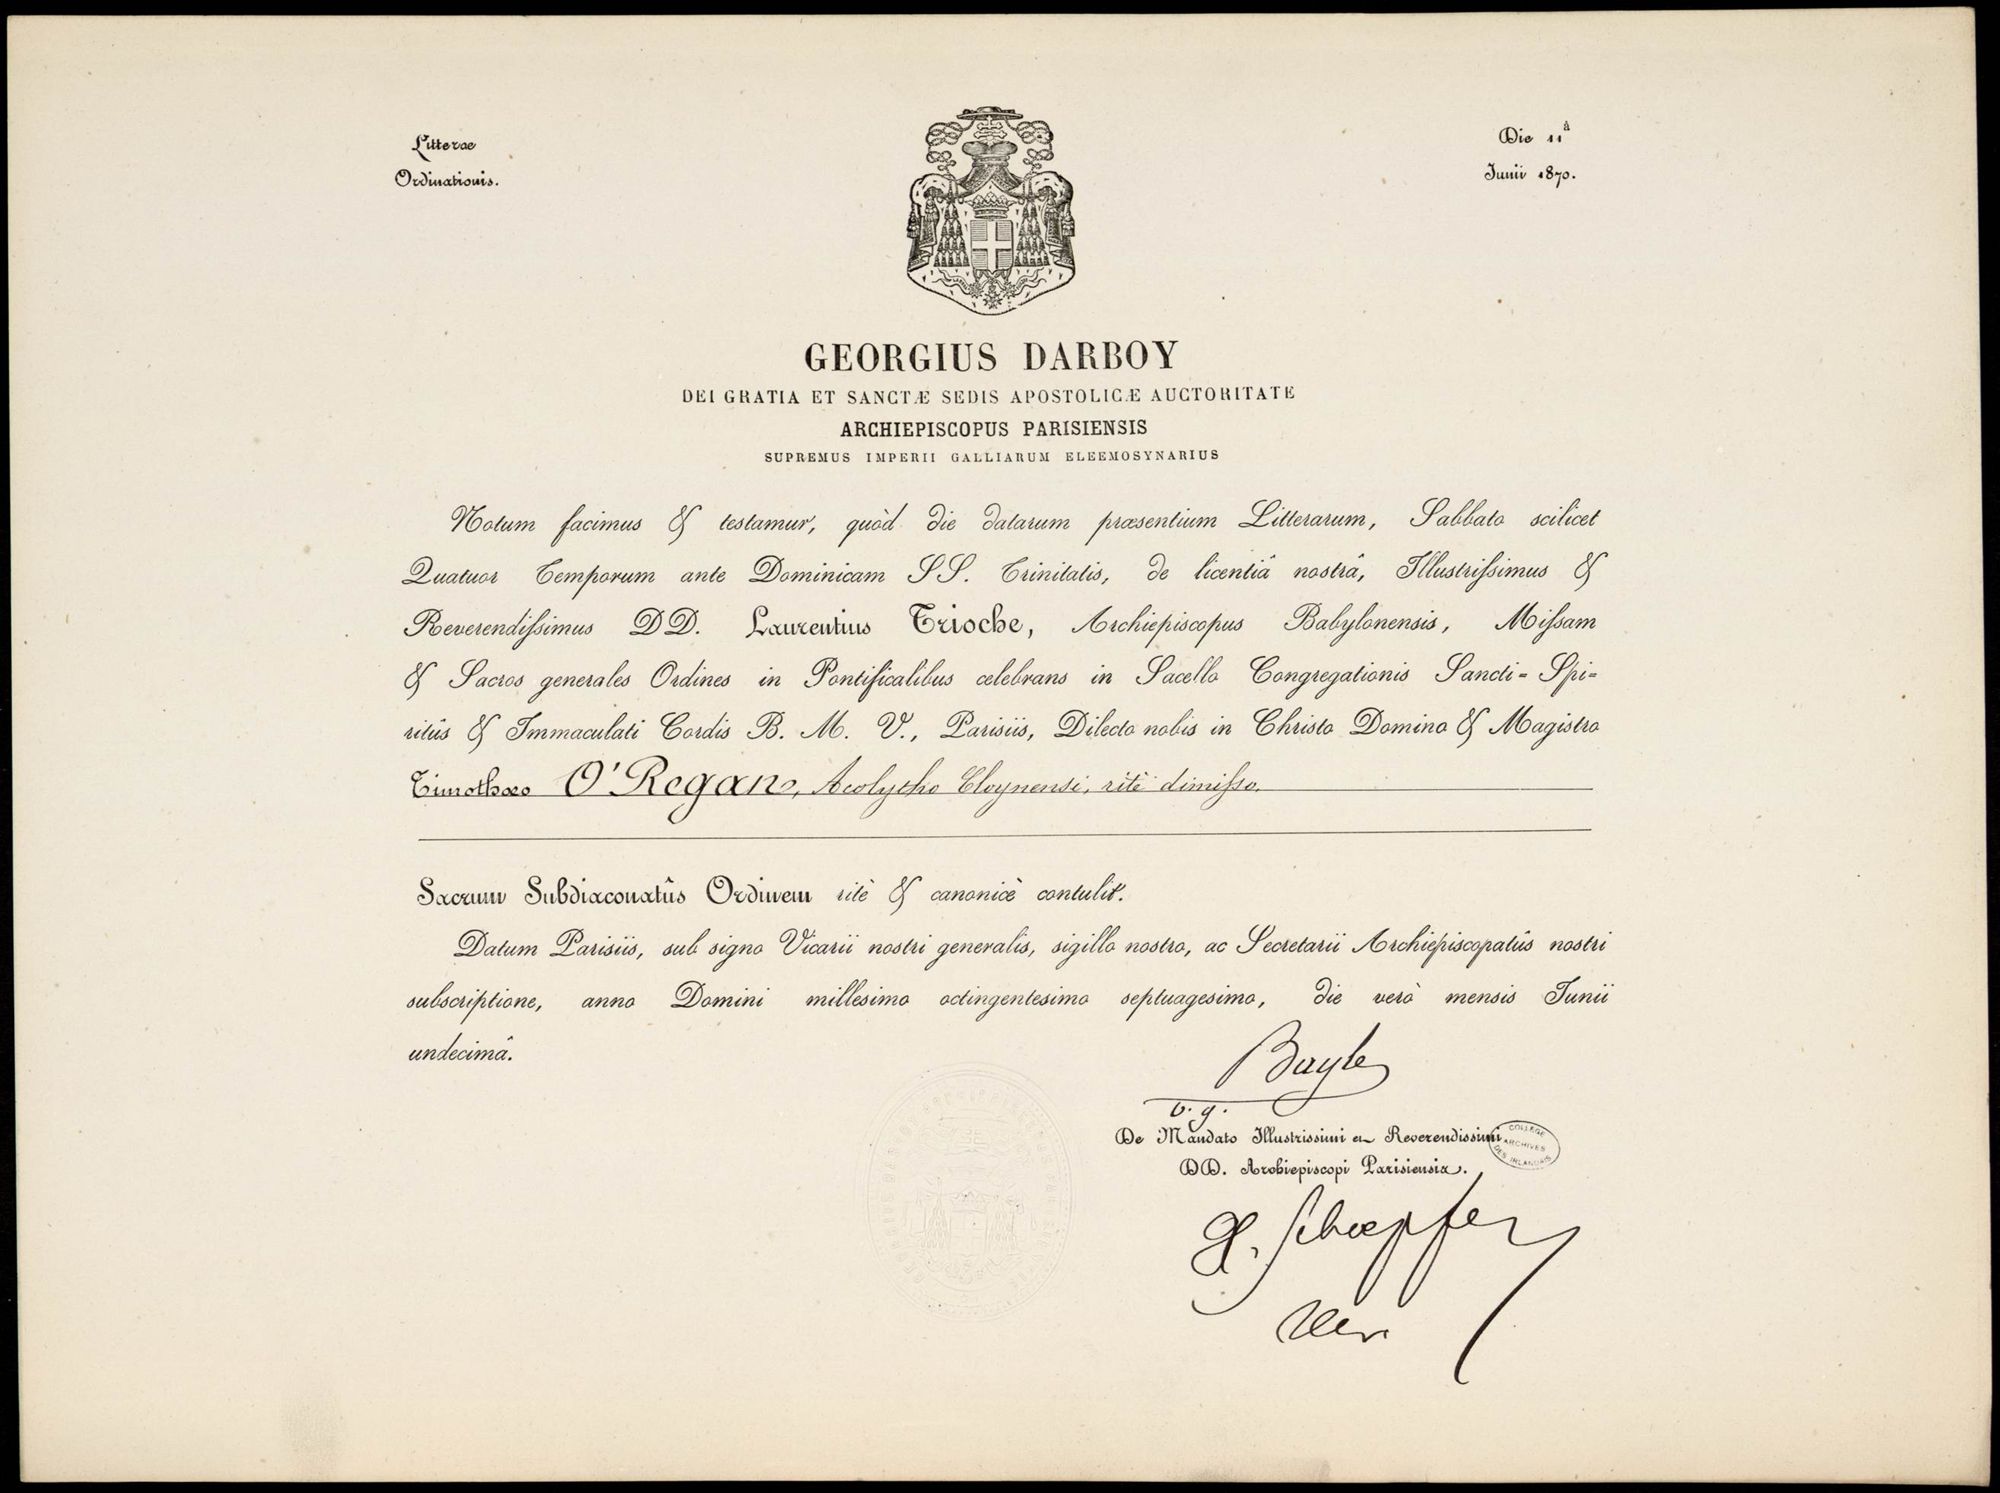 Litterae
Ordinationis.
Die 11â
Junii 1870.
GEORGIUS DARBOY
DEI GRATIA ET SANCTÆ SEDIS APOSTOLICÆ AUCTORITATE
ARCHIEPISCOPUS PARISIENSIS
SUPREMUS IMPERII GALLIARUM ELEEMOSYNARIUS
Notum facimus & testamur, quòd die datarum præsentium Litterarum, Sabbato scilicet
Quatuor Temporum ante Dominicam SS. Trinitatis, de licentiâ nostrâ, Illustriſsimus &
Reverendiſsimus DD. Laurentius Trioche, Archiepiscopus Babylonensis, Miſsam
& Sacros generales Ordines in Pontificalibus celebrans in Sacello Congregationis Sancti=Spi=
ritûs & Immaculati Cordis B. M. V., Parisiis, Dilecto nobis in Christo Domino & Magistro
Timothæo O'Regan, Acolytho Cloynensi, ritè dimiſso.
Sacrum Subdiaconatûs Ordinem ritè & canonicè contulit.
Datum Parisiis, sub signo Vicarii nostri generalis, sigillo nostro, ac Secretarii Archiepiscopatûs nostri
subscriptione, anno Domini millesimo octingentesimo septuagesimo, die verò mensis Junii
undecimâ.
Bayle
v. g.
De Mandato Illustrissimi et Reverendissimi
DD. Archiepiscopi Parisiensis.
COLLEGE
ARCHIVES
DES IRLANDAIS
Schoepfer